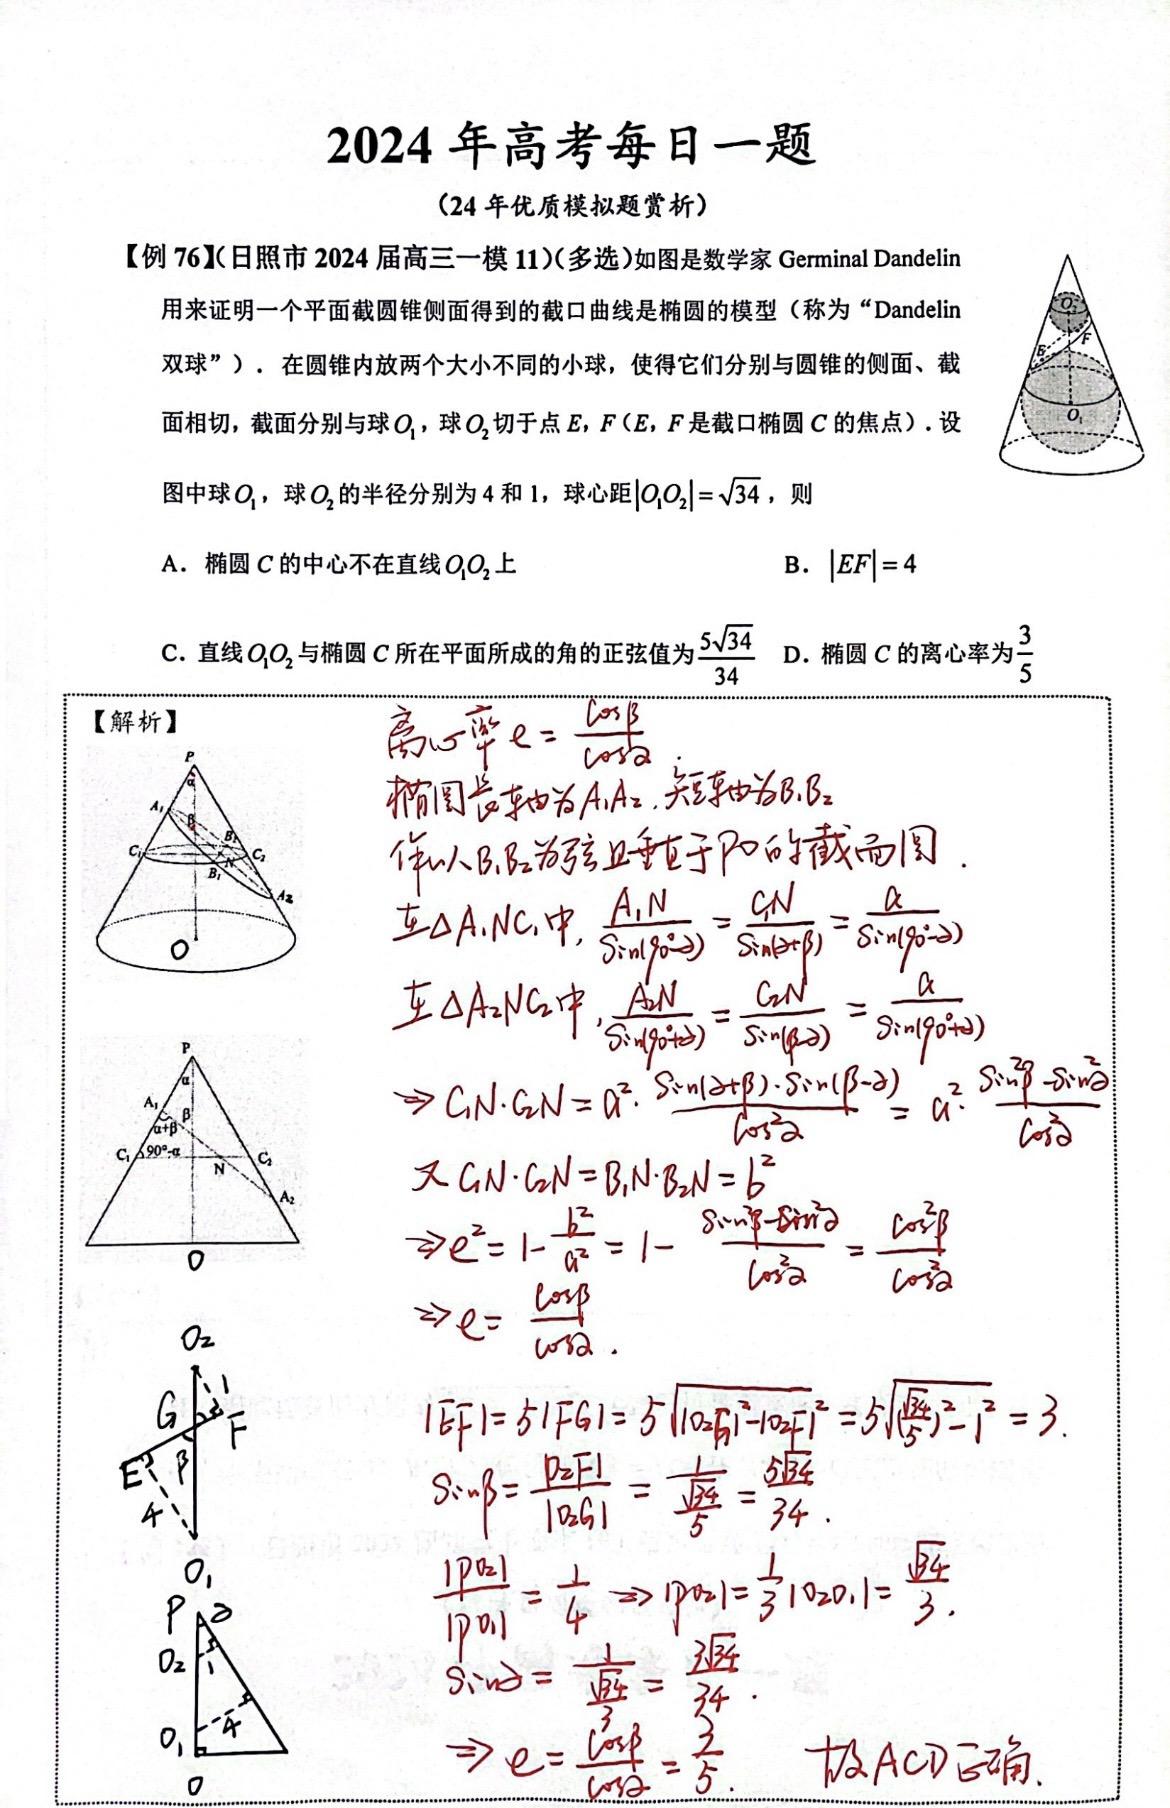 2024 年高考每日一题
（24 年优质模拟题赏析）
【例 76】（日照市 2024 届高三一模 11）（多选）如图是数学家 Germinal Dandelin
用来证明一个平面截圆锥侧面得到的截口曲线是椭圆的模型（称为“Dandelin
双球”）．在圆锥内放两个大小不同的小球，使得它们分别与圆锥的侧面、截
面相切，截面分别与球O₁，球O₂切于点 E，F（E，F 是截口椭圆 C 的焦点）．设
图中球O₁，球O₂的半径分别为 4 和 1，球心距|O₁O₂|=√34，则
A．椭圆 C 的中心不在直线O₁O₂上 B．|EF|=4
C．直线O₁O₂与椭圆 C 所在平面所成的角的正弦值为5√34/34 D．椭圆 C 的离心率为3/5
O₂
F
E
O₁
【解析】
离心率 e = cosβ/cosα.
椭圆长轴为A₁A₂，短轴为B₁B₂
作以B₁B₂为弦且垂直于PO的截面圆．
在△A₁NC₁中, A₁N/sin(90°-α) = C₁N/sin(α+β) = a/sin(90°-α)
在△A₂NC₂中, A₂N/sin(90°+α) = C₂N/sin(β-α) = a/sin(90°+α)
⇒ C₁N·C₂N = a²·sin(α+β)·sin(β-α)/cos²α = a²·(sin²β-sin²α)/cos²α
又 C₁N·C₂N = B₁N·B₂N = b²
⇒ e² = 1 - b²/a² = 1 - (sin²β-sin²α)/cos²α = cos²β/cos²α
⇒ e = cosβ/cosα.
|EF| = 5|FG| = 5√(|O₂G|²-|O₂F|²) = 5√((√34/5)²-1²) = 3.
sinβ = |O₂F|/|O₂G| = 1/(√34/5) = 5√34/34.
|PO₂|/|PO₁| = 1/4 ⇒ |PO₂| = 1/3|O₂O₁| = √34/3.
sinα = 1/(√34/3) = 3√34/34.
⇒ e = cosβ/cosα = 3/5. 故ACD正确.
P
α
A₁
β
B₂
C₁
C₂
N
B₁
A₂
O
P
α
A₁
β
α+β
C₁
90°-α
C₂
N
A₂
O
O₂
G
1
F
E
β
4
O₁
P
α
O₂
1
O₁
4
O